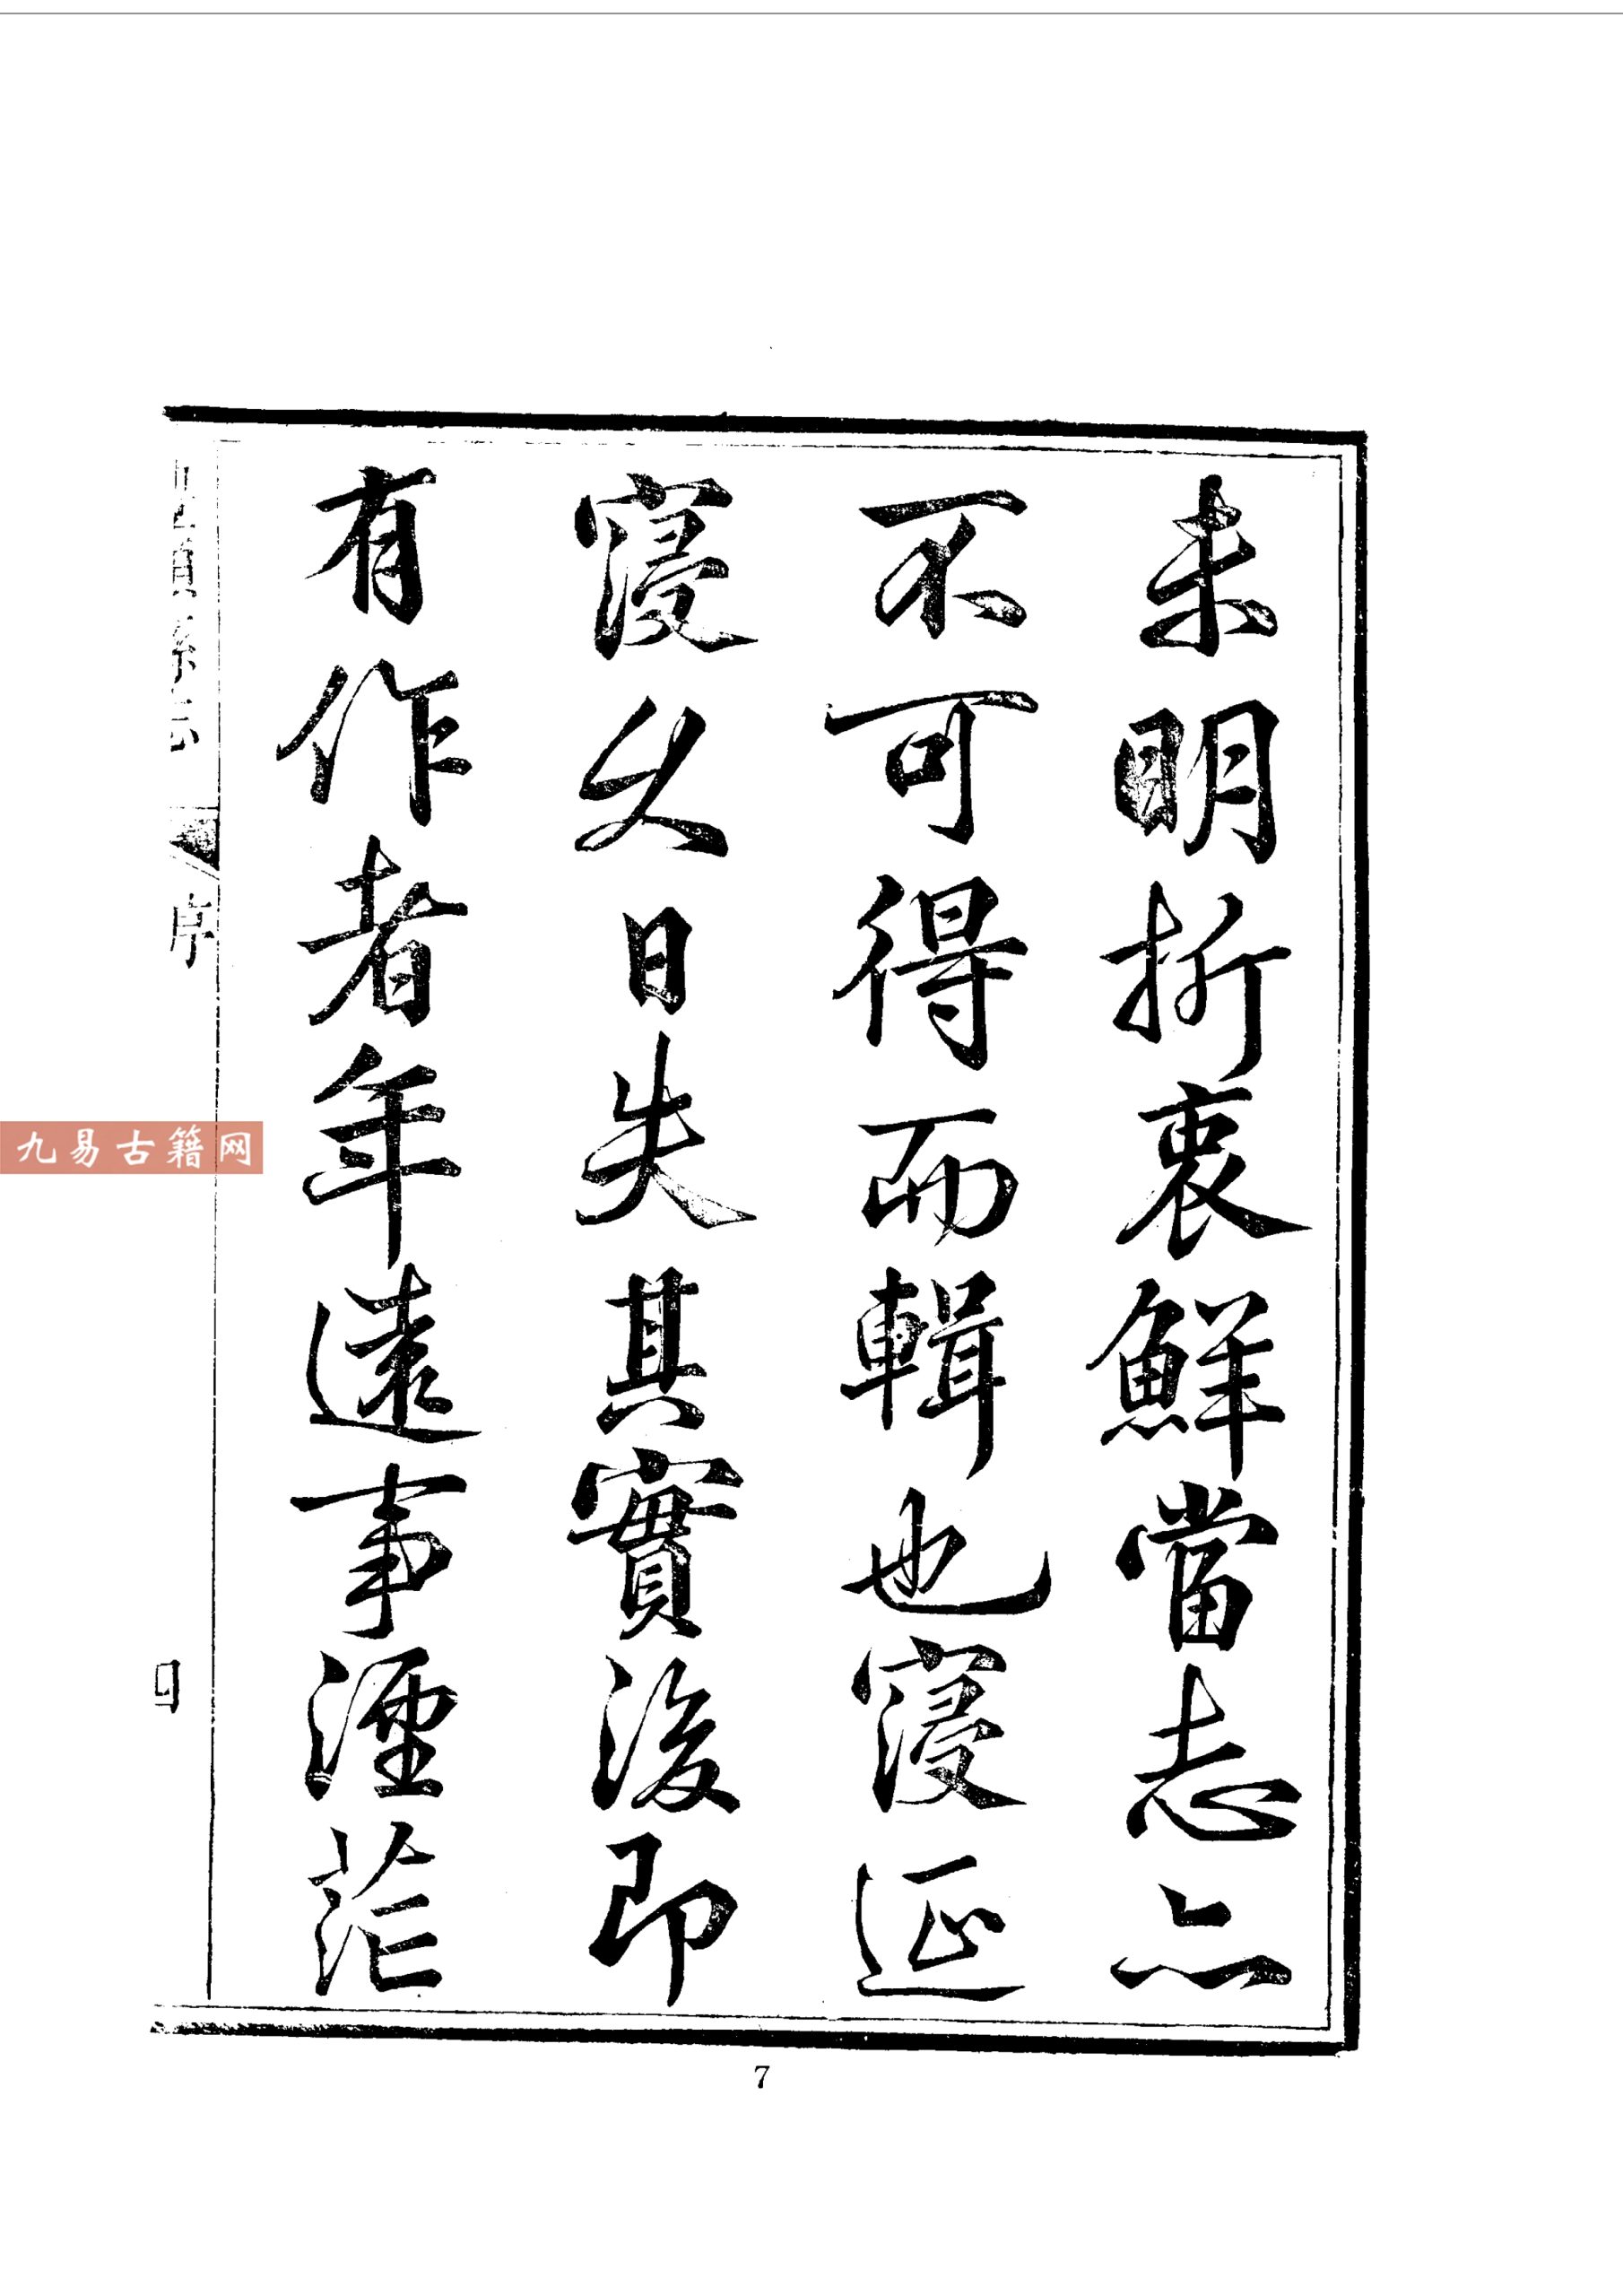 未明折衷鮮當志亦
不可得而輯也寖延
寖久日失其實後即
有作者年遠事湮茫
序
四
九易古籍网
7